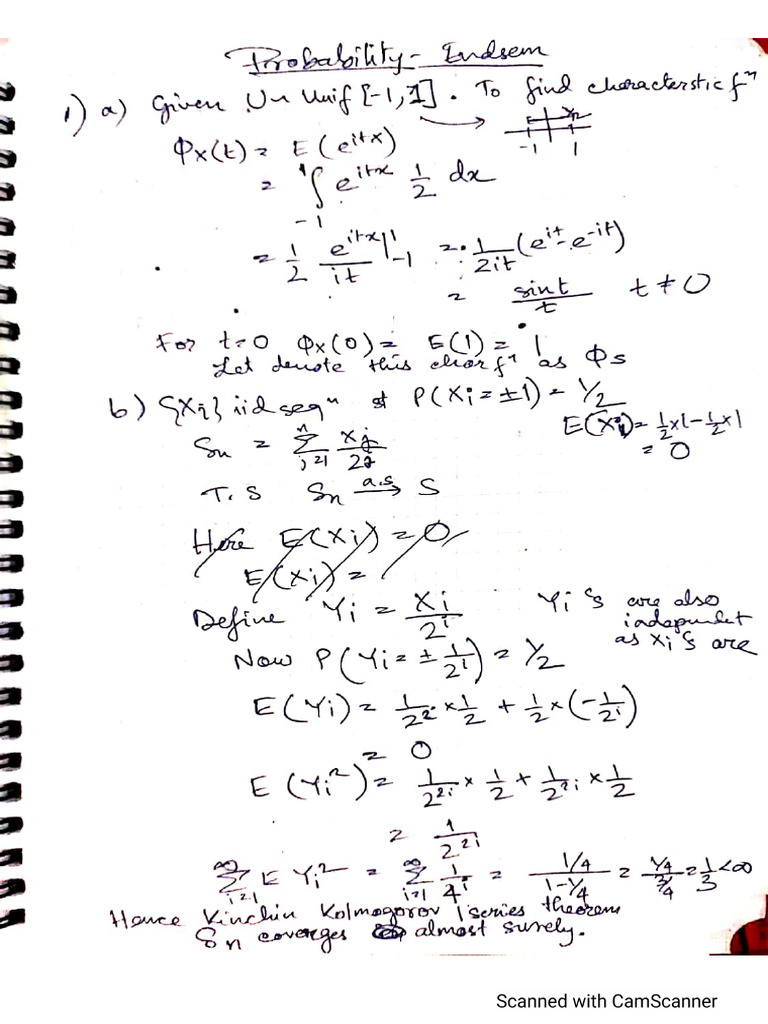 Probability - Endsem
1) a) Given U ~ Unif [-1, 1]. To find characterstic fⁿ
½
-1 1
Φx(t) = E(e^{itx})
= ∫_{-1}^{1} e^{itx} 1/2 dx
= 1/2 e^{itx}/it |_{-1}^{1} = 1/2it (e^{it} - e^{-it})
= sint/t t ≠ 0
For t=0 Φx(0) = E(1) = 1
Let denote this char fⁿ as Φs
b) {Xi} iid seqⁿ st P(Xi = ±1) = 1/2
E(Xi) = 1/2 x 1 - 1/2 x 1
= 0
Sn = Σ_{j=1}^{n} Xj/2^j
T.S Sn a.s→ S
Here E(Xi) = 0
E(Xi) =
Define Yi = Xi/2^i Yi's are also
independet
as Xi's are
Now P(Yi = ± 1/2^i) = 1/2
E(Yi) = 1/2^i x 1/2 + 1/2 x (-1/2^i)
= 0
E(Yi²) = 1/2^{2i} x 1/2 + 1/2^{2i} x 1/2
= 1/2^{2i}
Σ_{i=1}^{∞} E Yi² = Σ_{i=1}^{∞} 1/4^i = (1/4)/(1-1/4) = (1/4)/(3/4) = 1/3 < ∞
Hence Kinchin Kolmogorov 1 series theorem
Sn coverges almost surely.
Scanned with CamScanner